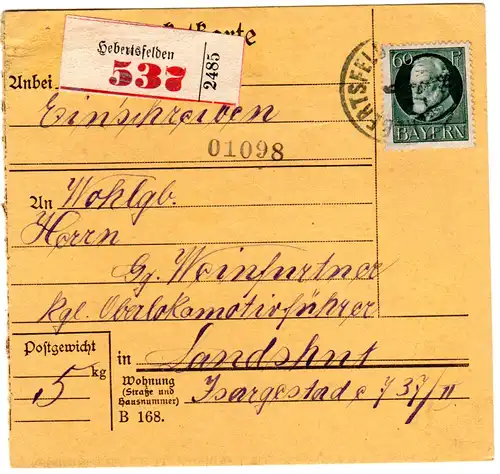 Hebertsfelden
537
2485
60 Pf
BAYERN
Anbei
Einschreiben
01098
An Wohlgb.
Herrn
Gg. Weinfurtner
kgl. Oberlokomotivführer
Postgewicht
5 kg
in Landshut
Wohnung
(Straße und
Hausnummer)
Isargestade 737/II
B 168.